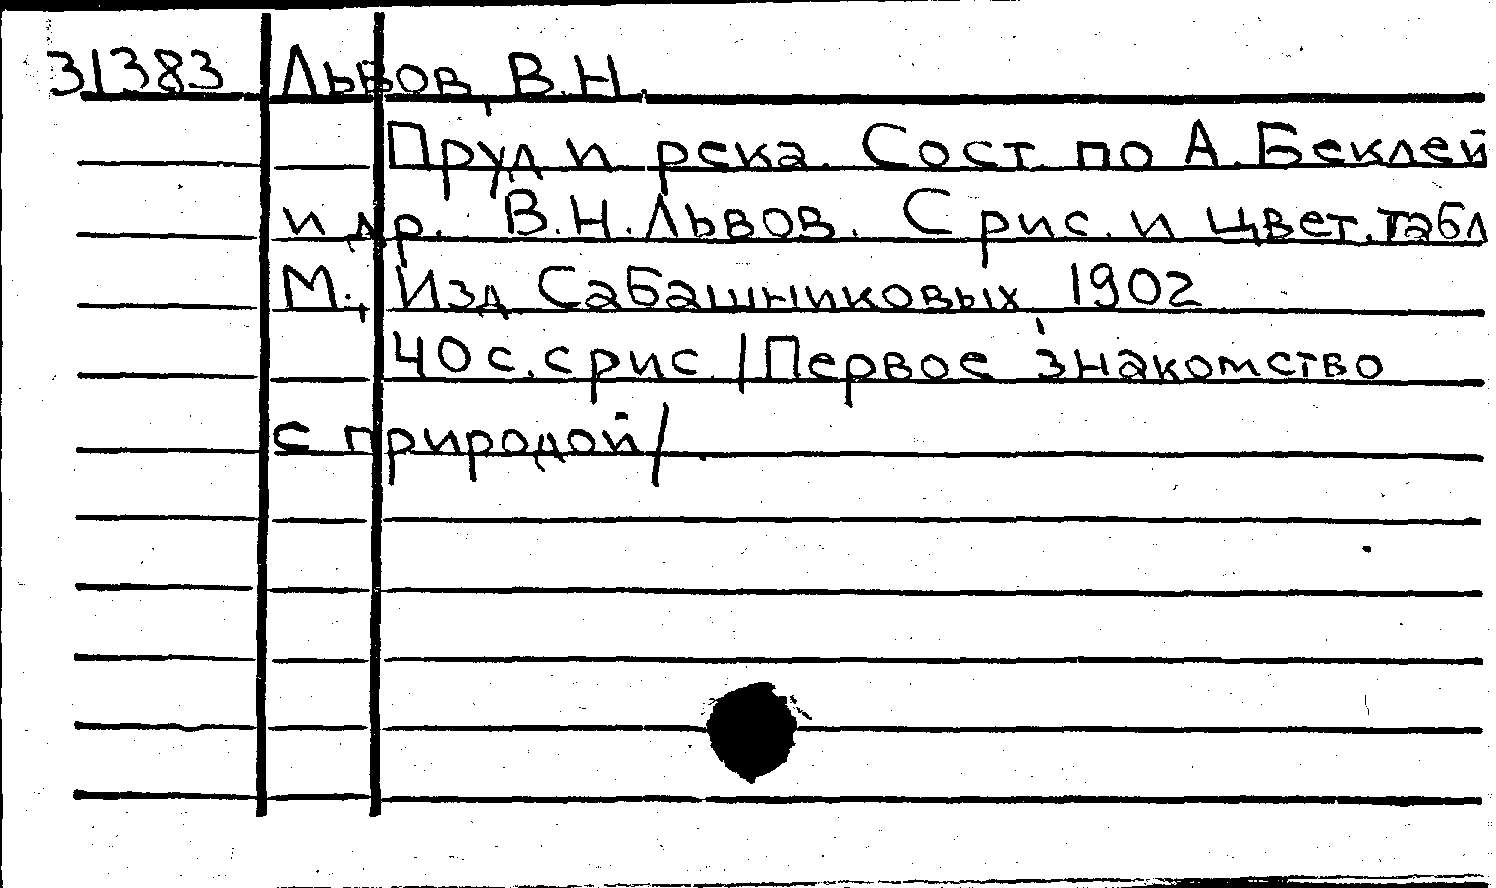 31383 Львов, В.Н.
Пруд и река. Сост. по А. Беклей
и др. В.Н. Львов. С рис. и цвет. табл
М., Изд. Сабашниковых, 1902
40 с. с рис. /Первое знакомство
с природой/.